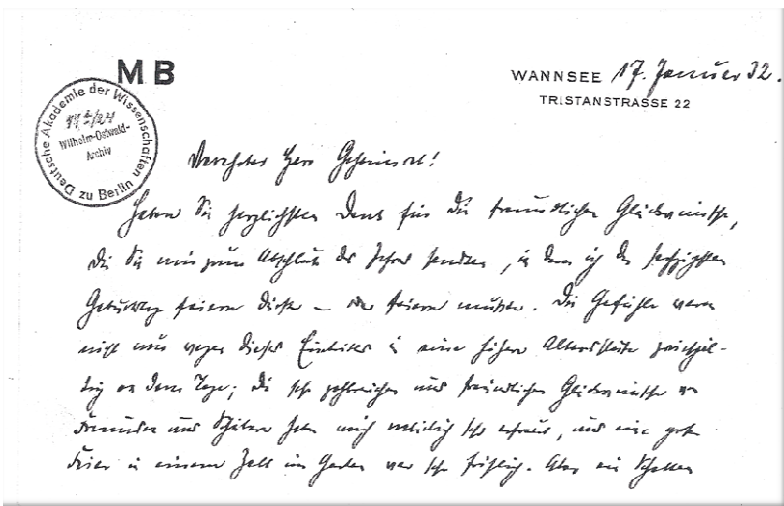 MB
WANNSEE 17. Januar 32.
TRISTANSTRASSE 22
Deutsche Akademie der Wissenschaften zu Berlin
Wilhelm-Ostwald-
Archiv
Verehrter Herr Geheimrat!
Haben Sie herzlichsten Dank für die freundlichen Glückwünsche,
die Sie mir zum Abschluß des Jahres sandten, in dem ich den sechzigsten
Geburtstag feiern durfte – oder feiern mußte. Die Gefühle waren
nicht nur wegen dieses Eintrittes in eine höhere Altersstufe zwiespäl-
tig an dem Tage; die sehr zahlreichen und freundlichen Glückwünsche von
Freunden und Schülern haben mich natürlich sehr erfreut, und eine
Feier in einem Zelt im Garten war sehr fröhlich. Aber ein Schatten